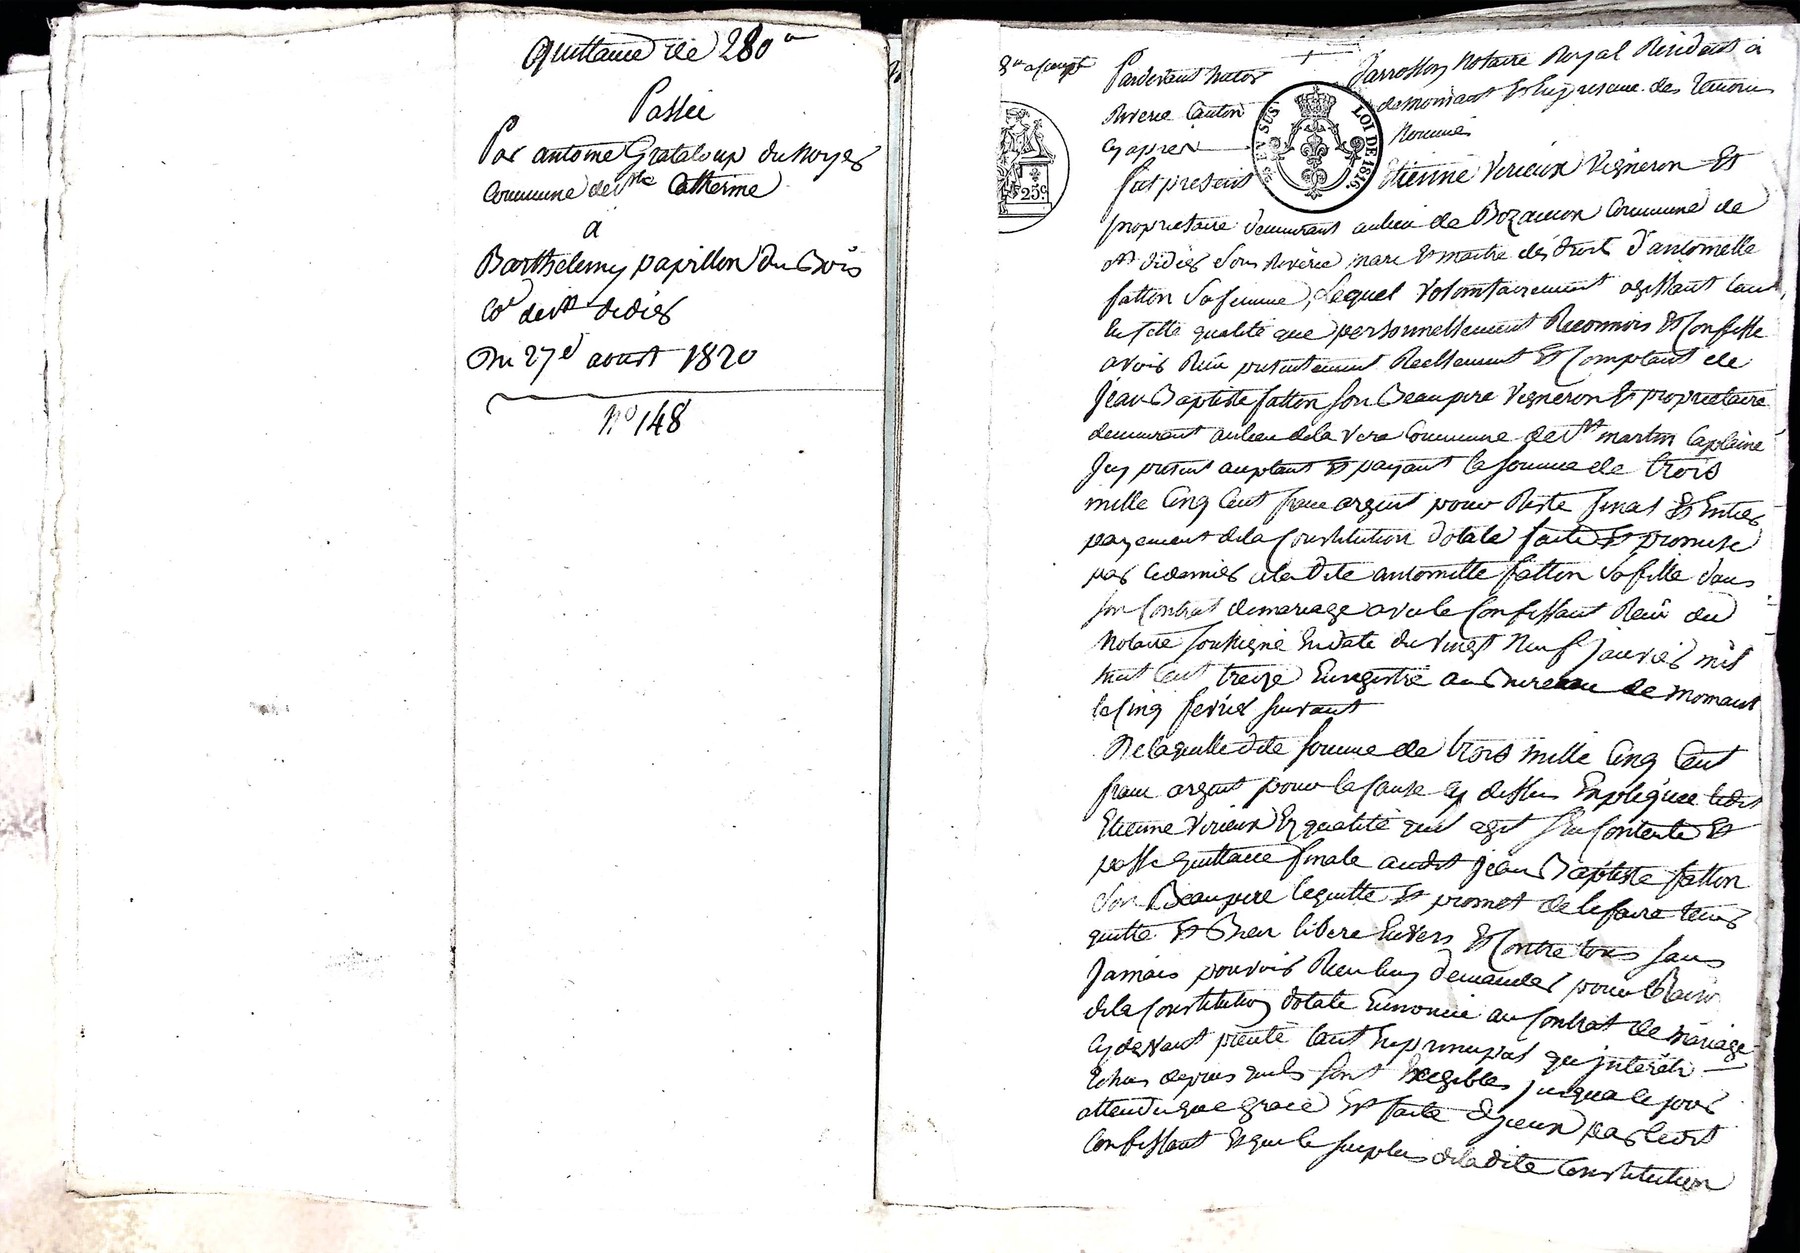 Quittance de 280 #
Passée
Par antoine Grataloup du noyer
Commune de Ste Catherine
a
Barthelemy papillon du Bois
Co de St didier
Du 27e aoust 1820
No 148
Pardevant Jarrosson Notaire Royal Résidant à
Riverie Canton de mornant Et En présence des témoins
cy après nommés
TIM SUS LOI DE 1816.
25c.
fut présent Etienne Virieux Vigneron Et
propriétaire demeurant au lieu de Bozançon Commune de
St didier sous Riverie mari Et maitre des droits d'antoinette
fatton sa femme, Lequel volontairement agissant tant
En cette qualité que personnellement Reconnois Et Confesse
avoir Reçu présentement Reellement Et Comptant de
Jean Baptiste fatton son Beaupere Vigneron Et propriétaire
demeurant au lieu de la Vera Commune de St martin Laplaine
Icy présent acceptant Et payant la somme de trois
mille Cinq Cent franc argent pour Reste final Et Entier
payement de la Constitution dotale faite Et promise
par ce dernier a la dite antoinette fatton sa fille dans
son Contrat de mariage avec le Confessant Reçu du
Notaire soussigné En date du vingt Neuf Janvier mil
huit Cent treize Enregistré au Bureau de mornant
le Cinq février suivant
De laquelle dite somme de trois mille Cinq Cent
franc argent pour la Cause cy dessus Expliquée ledit
Etienne Virieux En qualité quil agit sen Contente Et
passe quittance finale audit Jean Baptiste fatton
son Beaupere lequitte Et promet de le faire tenir
quitte Et Bien libéré Envers Et Contre tous sans
Jamais pouvoir Rien luy demander pour Raison
de la Constitution dotale Ennoncée au Contrat de mariage
cy devant précité tant En principal qu'intérêts
Echus depuis quils sont Exegibles jusqua ce jour
attendu que grace Est faite diceux par ledit
Confessant Et que le surplus de la dite Constitution